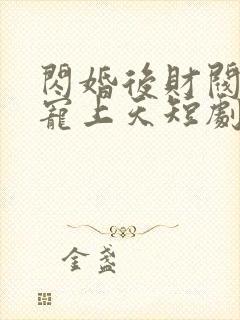 閃婚後財閥
寵上天短劇
金盞